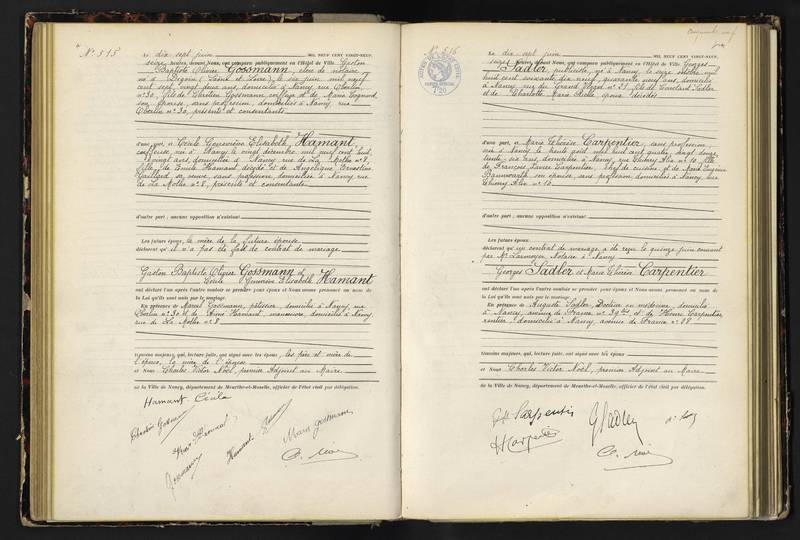 N° 515
Le dix sept juin MIL NEUF CENT VINGT-NEUF,
seize heures, devant Nous, ont comparu publiquement en l'Hôtel de Ville Gaston
Baptiste Olivier Gossmann, clerc de notaire
né à Digoin (Saône et Loire), le six juin mil neuf
cent sept, vingt deux ans, domicilié à Nancy, rue
Oberlin n° 30, fils de Gossmann et de Maria
son épouse, sans profession, domiciliés à Nancy, rue
Oberlin n° 30, présents et consentants
d'une part, & Cécile Geneviève Elisabeth Hamant
née à Nancy le vingt décembre mil neuf cent huit,
vingt ans, domiciliée à Nancy rue de La Mothe n° 8,
fille de Emile Hamant décédé et de Angélique Ernestine
sa veuve, sans profession, domiciliée à Nancy rue
de La Mothe n° 8, présente et consentante
d'autre part ; aucune opposition n'existant
Les futurs époux, la mère de la future épouse
déclarent qu'il n'a pas été fait de contrat de mariage
Gaston Baptiste Olivier Gossmann et
Cécile Geneviève Elisabeth Hamant
ont déclaré l'un après l'autre vouloir se prendre pour époux et Nous avons prononcé au nom de
la Loi qu'ils sont unis par le mariage.
En présence de Marcel Gossmann, pâtissier, domicilié à Nancy, rue
Oberlin n° 30 et de Hamant, manœuvre, domicilié à Nancy,
rue de La Mothe n° 8
témoins majeurs, qui, lecture faite, ont signé avec les époux, les père et mère de
l'époux, la mère de l'épouse
et Nous Charles Victor Noël, premier Adjoint au Maire
de la Ville de Nancy, département de Meurthe-et-Moselle, officier de l'état civil par délégation.
Hamant Cécile
Gossmann
Hamant
Gossmann
N° 516
Le dix sept juin MIL NEUF CENT VINGT-NEUF,
seize heures, devant Nous, ont comparu publiquement en l'Hôtel de Ville Georges
Sadler, publiciste, né à Nancy, le seize octobre mil
huit cent soixante dix neuf, quarante neuf ans, domicilié
à Nancy rue du Grand Verger n° 21, fils de Sadler
et de Charlotte Marie époux décédés
d'une part, & Marie Thérèse Carpentier, sans profession,
née à Nancy le huit août mil huit cent quatre vingt douze,
trente six ans, domiciliée à Nancy, rue Thierry Alix n° 10, fille
de François Xavier Carpentier, chef de cuisine et de Marie Eugénie
son épouse, sans profession, domiciliés à Nancy, rue
Thierry Alix n° 10
d'autre part ; aucune opposition n'existant
Les futurs époux
déclarent qu'un contrat de mariage a été reçu le quinze juin courant
par Me Notaire à Nancy
Georges Sadler et Marie Thérèse Carpentier
ont déclaré l'un après l'autre vouloir se prendre pour époux et Nous avons prononcé au nom de
la Loi qu'ils sont unis par le mariage.
En présence de Auguste Sadler, Docteur en médecine, domicilié
à Nancy, avenue de France n° et de Henri Carpentier
rentier, domicilié à Nancy, avenue de France n° 88
témoins majeurs, qui, lecture faite, ont signé avec les époux
et Nous Charles Victor Noël, premier Adjoint au Maire
de la Ville de Nancy, département de Meurthe-et-Moselle, officier de l'état civil par délégation.
Carpentier
Carpentier